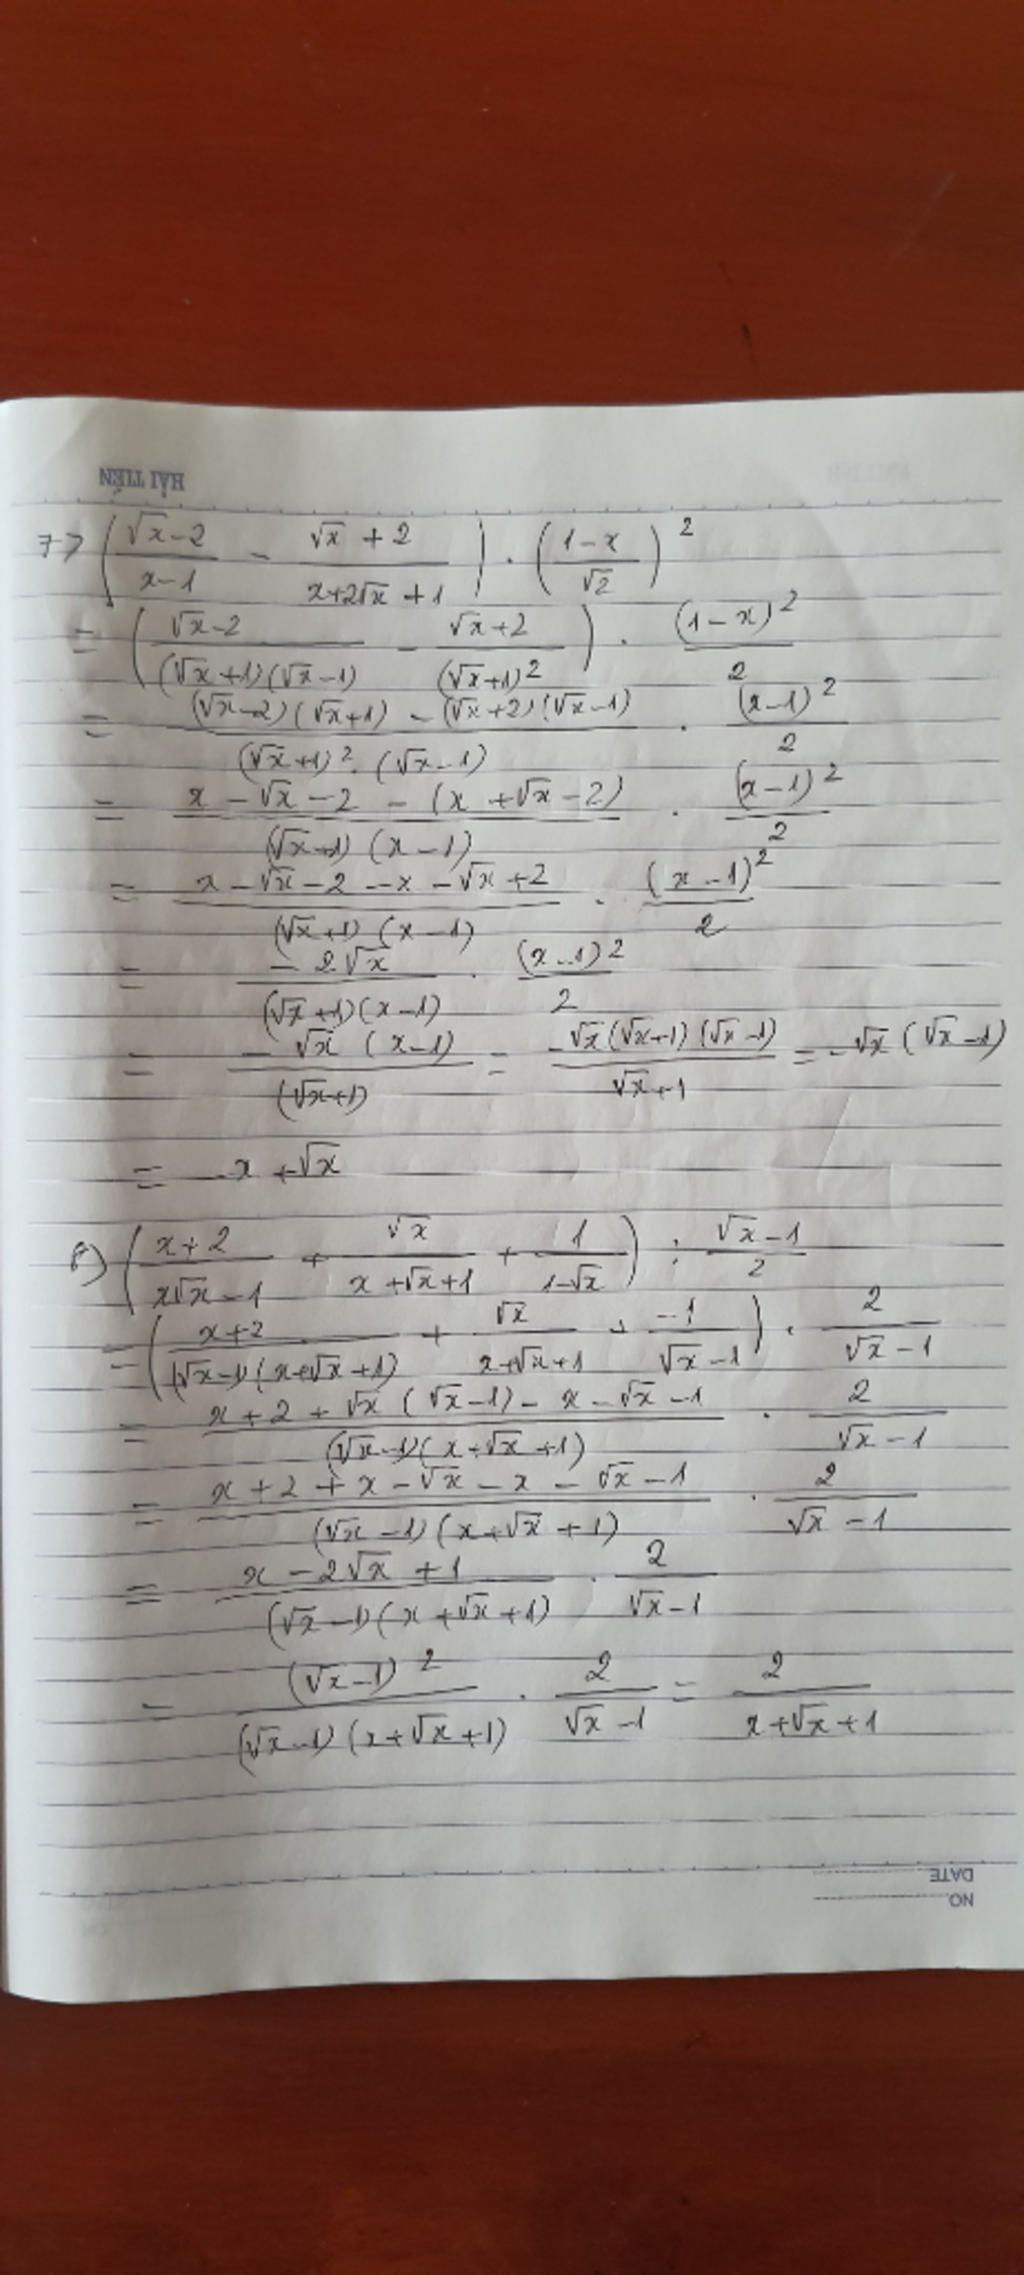 HẢI TIẾN
7) ((√x-2)/(x-1) - (√x+2)/(x+2√x+1)) . ((1-x)/√2)²
= ((√x-2)/((√x+1)(√x-1)) - (√x+2)/(√x+1)²) . (1-x)²/2
= ((√x-2)(√x+1) - (√x+2)(√x-1))/((√x+1)².(√x-1)) . (x-1)²/2
= (x-√x-2-(x+√x-2))/((√x+1)(x-1)) . (x-1)²/2
= (x-√x-2-x-√x+2)/((√x+1)(x-1)) . (x-1)²/2
= (-2√x)/((√x+1)(x-1)) . (x-1)²/2
= (-√x(x-1))/((√x+1)) = (-√x(√x+1)(√x-1))/(√x+1) = -√x(√x-1)
= -x+√x
8) ((x+2)/(x√x-1) + √x/(x+√x+1) + 1/(1-√x)) : (√x-1)/2
= ((x+2)/((√x-1)(x+√x+1)) + √x/(x+√x+1) + (-1)/(√x-1)) . 2/(√x-1)
= (x+2+√x(√x-1)-x-√x-1)/((√x-1)(x+√x+1)) . 2/(√x-1)
= (x+2+x-√x-x-√x-1)/((√x-1)(x+√x+1)) . 2/(√x-1)
= (x-2√x+1)/((√x-1)(x+√x+1)) . 2/(√x-1)
= (√x-1)²/((√x-1)(x+√x+1)) . 2/(√x-1) = 2/(x+√x+1)
DATE
NO.